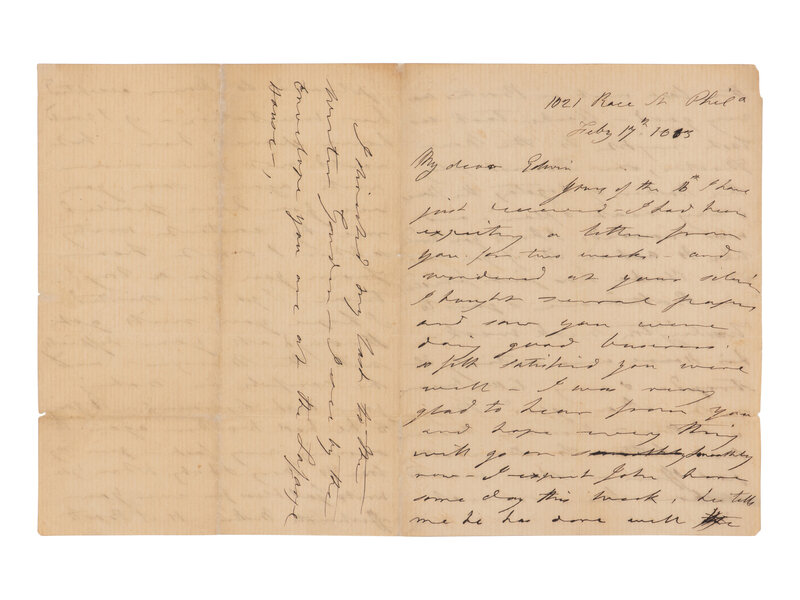 1021 Race St Phila
Feby 17th
My dear Edwin
Yours of the 6th I have
just received - I had been
expecting a letter from
you for two weeks - and
wondered at your
I bought several papers
and saw you were
doing good business.
so felt satisfied you were
well - I was very
glad to hear from you
and hope every thing
will go on smoothly
now - I expect John here
some day this week, he tells
me he has done well
I directed my last to the
Winter Garden - I see by the
Envelope you are at the Lafarge
House -,